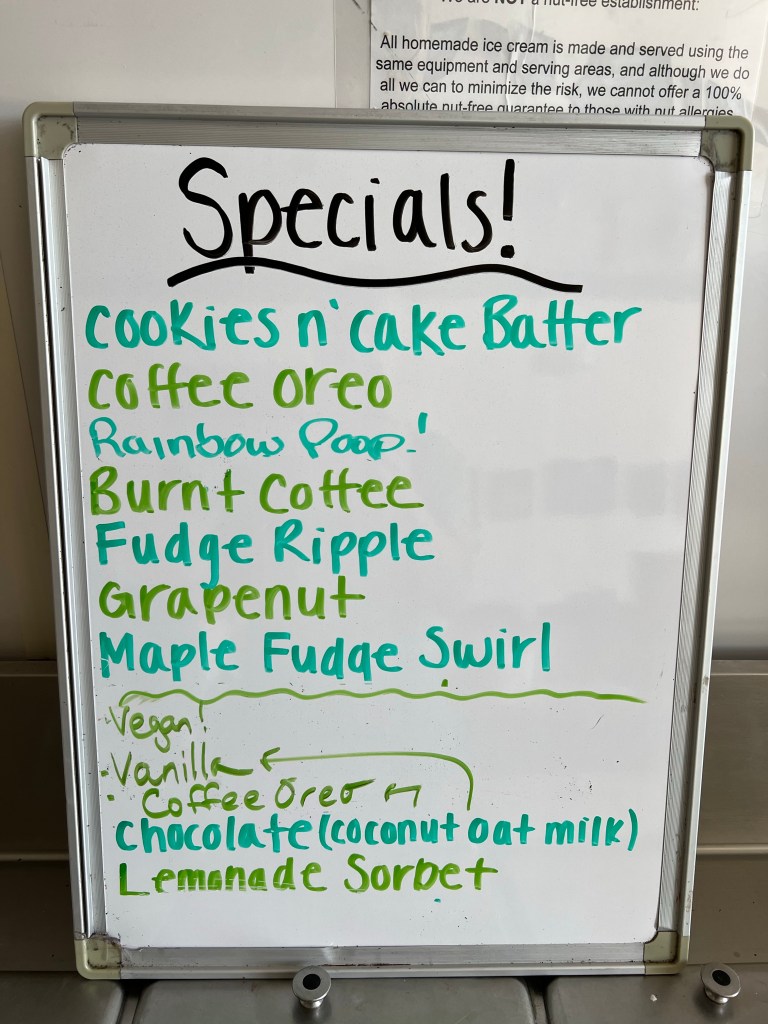 We are NOT a nut-free establishment:
All homemade ice cream is made and served using the
same equipment and serving areas, and although we do
all we can to minimize the risk, we cannot offer a 100%
absolute nut-free guarantee to those with nut allergies.
Specials!
Cookies n' cake Batter
Coffee oreo
Rainbow Poop!
Burnt Coffee
Fudge Ripple
Grapenut
Maple Fudge Swirl
Vegan!
· Vanilla
· Coffee Oreo
Chocolate (coconut oat milk)
Lemonade Sorbet